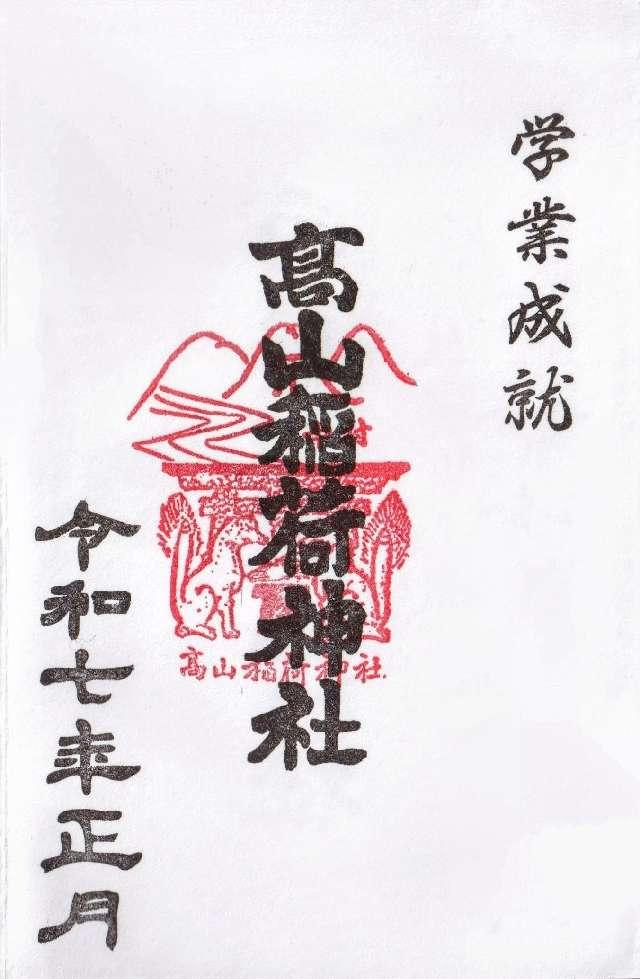 学業成就
髙山稲荷神社
高山稲荷神社
令和七年正月